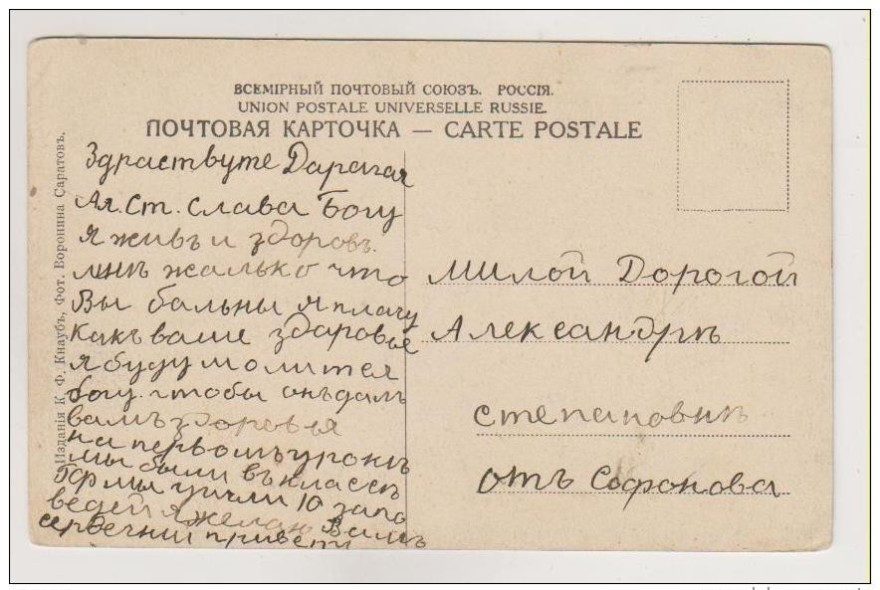 ВСЕМІРНЫЙ ПОЧТОВЫЙ СОЮЗЪ. РОССІЯ.
UNION POSTALE UNIVERSELLE RUSSIE.
ПОЧТОВАЯ КАРТОЧКА — CARTE POSTALE
Изданія К. Ф. Кнаубъ, Фот. Воронина Саратовъ.
Здраствуте Дарагая
Ал. Ст. Слава Богу
я живъ и здоровъ.
мнѣ жалько что
Вы бальны я плачу
какъ ваше здаровье
я буду молится
богу. чтобы онъ далъ
вамъ здоровья
на первомъ урокѣ
мы были въ классѣ
мы учили 10 запо
ведей я желаю Вамъ
привети
Милой Дорогой
Александрѣ
степановнѣ
отъ Софонова